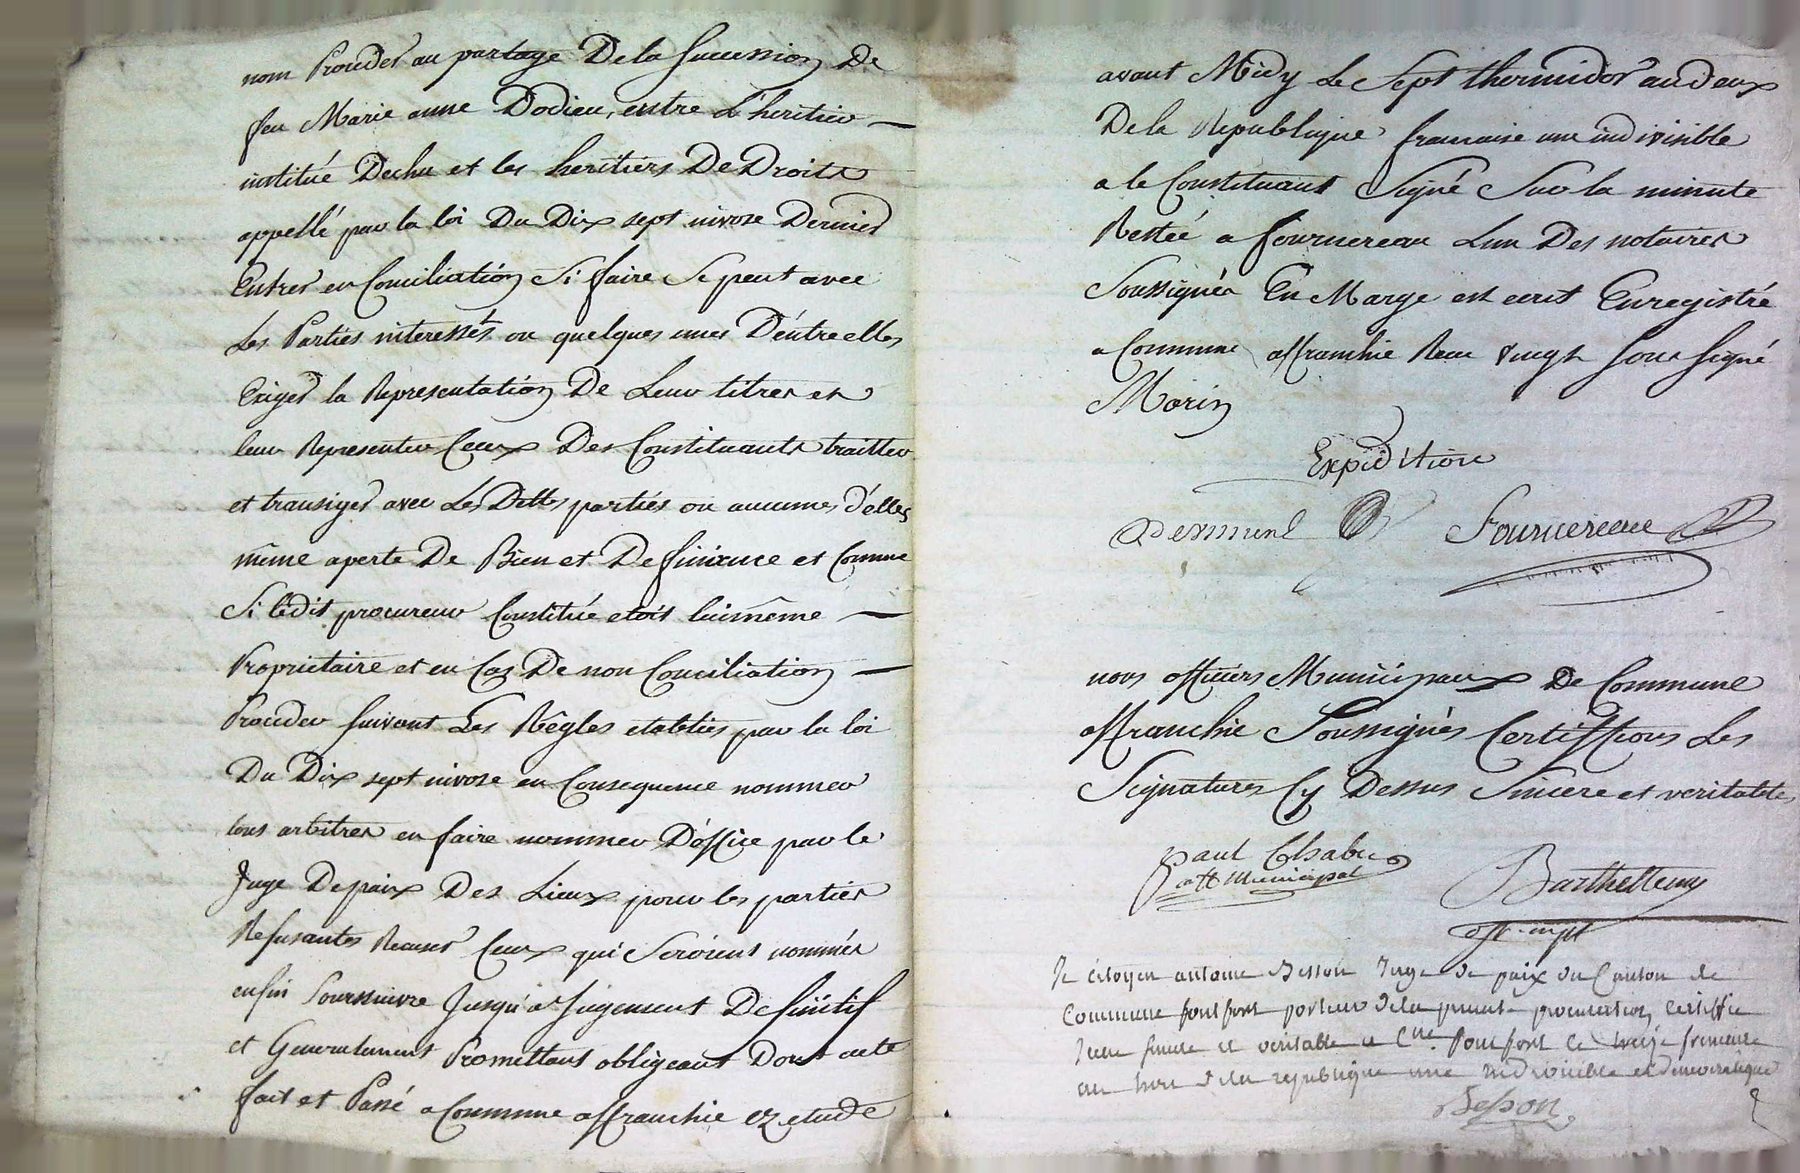 nom Proceder au partage De la Sucession De
feu Marie anne Dodieu, entre L'heritier
institué Dechu et les heritiers De Droits
appellé par la loi Du Dix sept nivose Dernier
Entrer en Conciliation Si faire Se peut avec
Les Parties interessés ou quelques unes D'éntre elles
Exiger la Representation De Leur titres et
leur Representer Ceux Des Constituants traitter
et transiger avec Les Dittes parties ou aucunes d'elles
même aperte De Bien et De finance et Comme
Si ledit procureur Constitué etoit luimême
Proprietaire et en Cas De non Conciliation
Proceder Suivant Les Règles etablies par la loi
Du Dix sept nivose en Consequence nommer
tous arbitres en faire nommer D'office par le
Juge De paix Des Lieux pour les parties
Refusantes Recuser Ceux qui Seroient nommés
enfin Poursuivre Jusqu'a Jugement Definitif
et Generalement Promettant obligeant Dont acte
fait et Passé a Commune affranchie ez etude
avant Midy Le Sept thermidor an deux
De la Republique francaise une indivisible
a le Constituant Signé Sur la minute
Restée a fournereau Lun Des notaires
Soussignés En Marge est ecrit Enregistré
a Commune affranchie Recu vingt Sous Signé
Morin
Expédition
Fournereau
nous officiers Municipaux De Commune
affranchie Soussignés Certiffions Les
Signatures Cy Dessus Sincere et veritables
paul Chabu
off Municipal
Barthellemy
off. mpl
Je citoyen antoine Besson Juge de paix du Canton de
Commune fontfort porteur de la presente procuration, certiffie
sincere et veritable a Cne fontfort Ce treize frimaire
an trois de la republique une indivisible et democratique
Besson